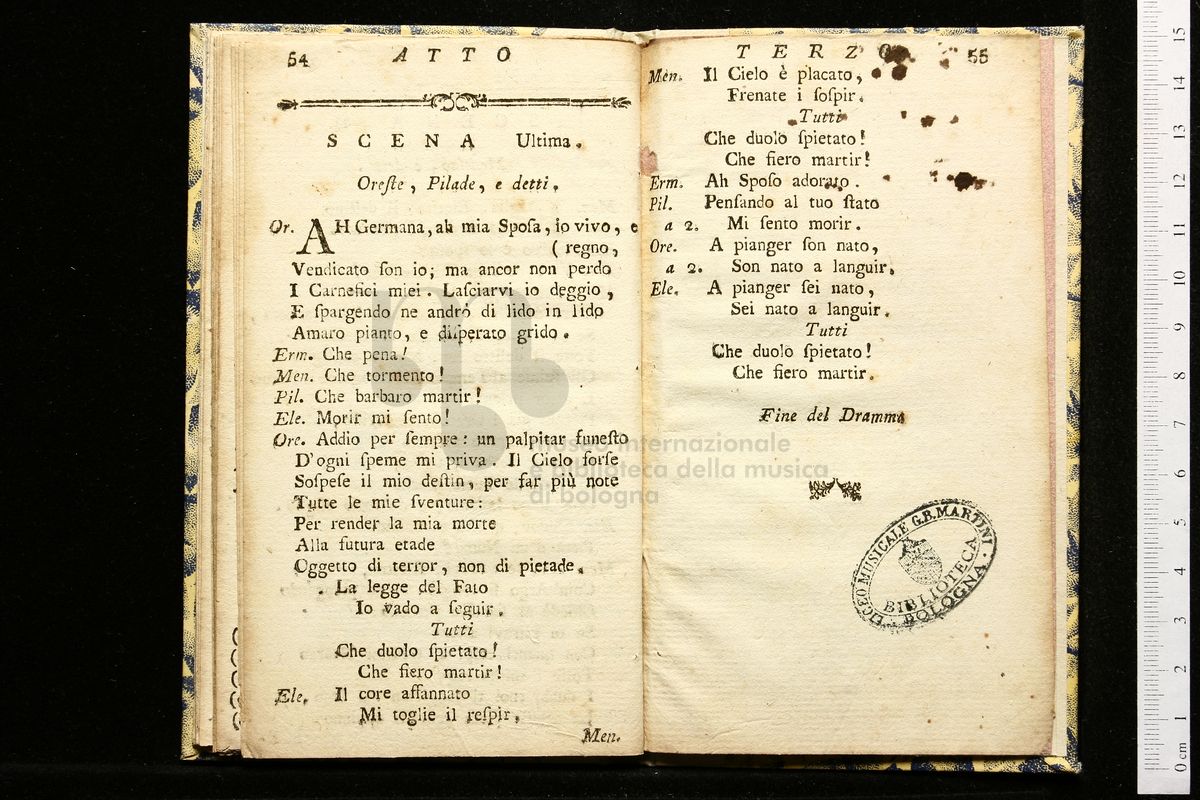 54 ATTO
SCENA Ultima.
Oreſte, Pilade, e detti.
Or. AH Germana, ah mia Spoſa, io vivo, e
( regno,
Vendicato ſon io; ma ancor non perdo
I Carnefici miei. Laſciarvi io deggio,
E ſpargendo ne andrò di lido in lido
Amaro pianto, e diſperato grido.
Erm. Che pena!
Men. Che tormento!
Pil. Che barbaro martir!
Ele. Morir mi ſento!
Ore. Addio per ſempre: un palpitar funeſto
D'ogni ſpeme mi priva. Il Cielo forſe
Soſpeſe il mio deſtin, per far più note
Tutte le mie ſventure:
Per render la mia morte
Alla futura etade
Oggetto di terror, non di pietade.
La legge del Fato
Io vado a ſeguir.
Tutti
Che duolo ſpietato!
Che fiero martir!
Ele. Il core affannato
Mi toglie il reſpir.
Men.
TERZO 55
Men. Il Cielo è placato,
Frenate i ſoſpir.
Tutti
Che duolo ſpietato!
Che fiero martir!
Erm. Ah Spoſo adorato.
Pil. Penſando al tuo ſtato
a 2. Mi ſento morir.
Ore. A pianger ſon nato,
a 2. Son nato a languir.
Ele. A pianger ſei nato,
Sei nato a languir.
Tutti
Che duolo ſpietato!
Che fiero martir.
Fine del Dramma
internazionale
biblioteca della musica
di bologna
LICEO MUSICALE G.B. MARTINI
BIBLIOTECA
BOLOGNA
0 cm 1 2 3 4 5 6 7 8 9 10 11 12 13 14 15